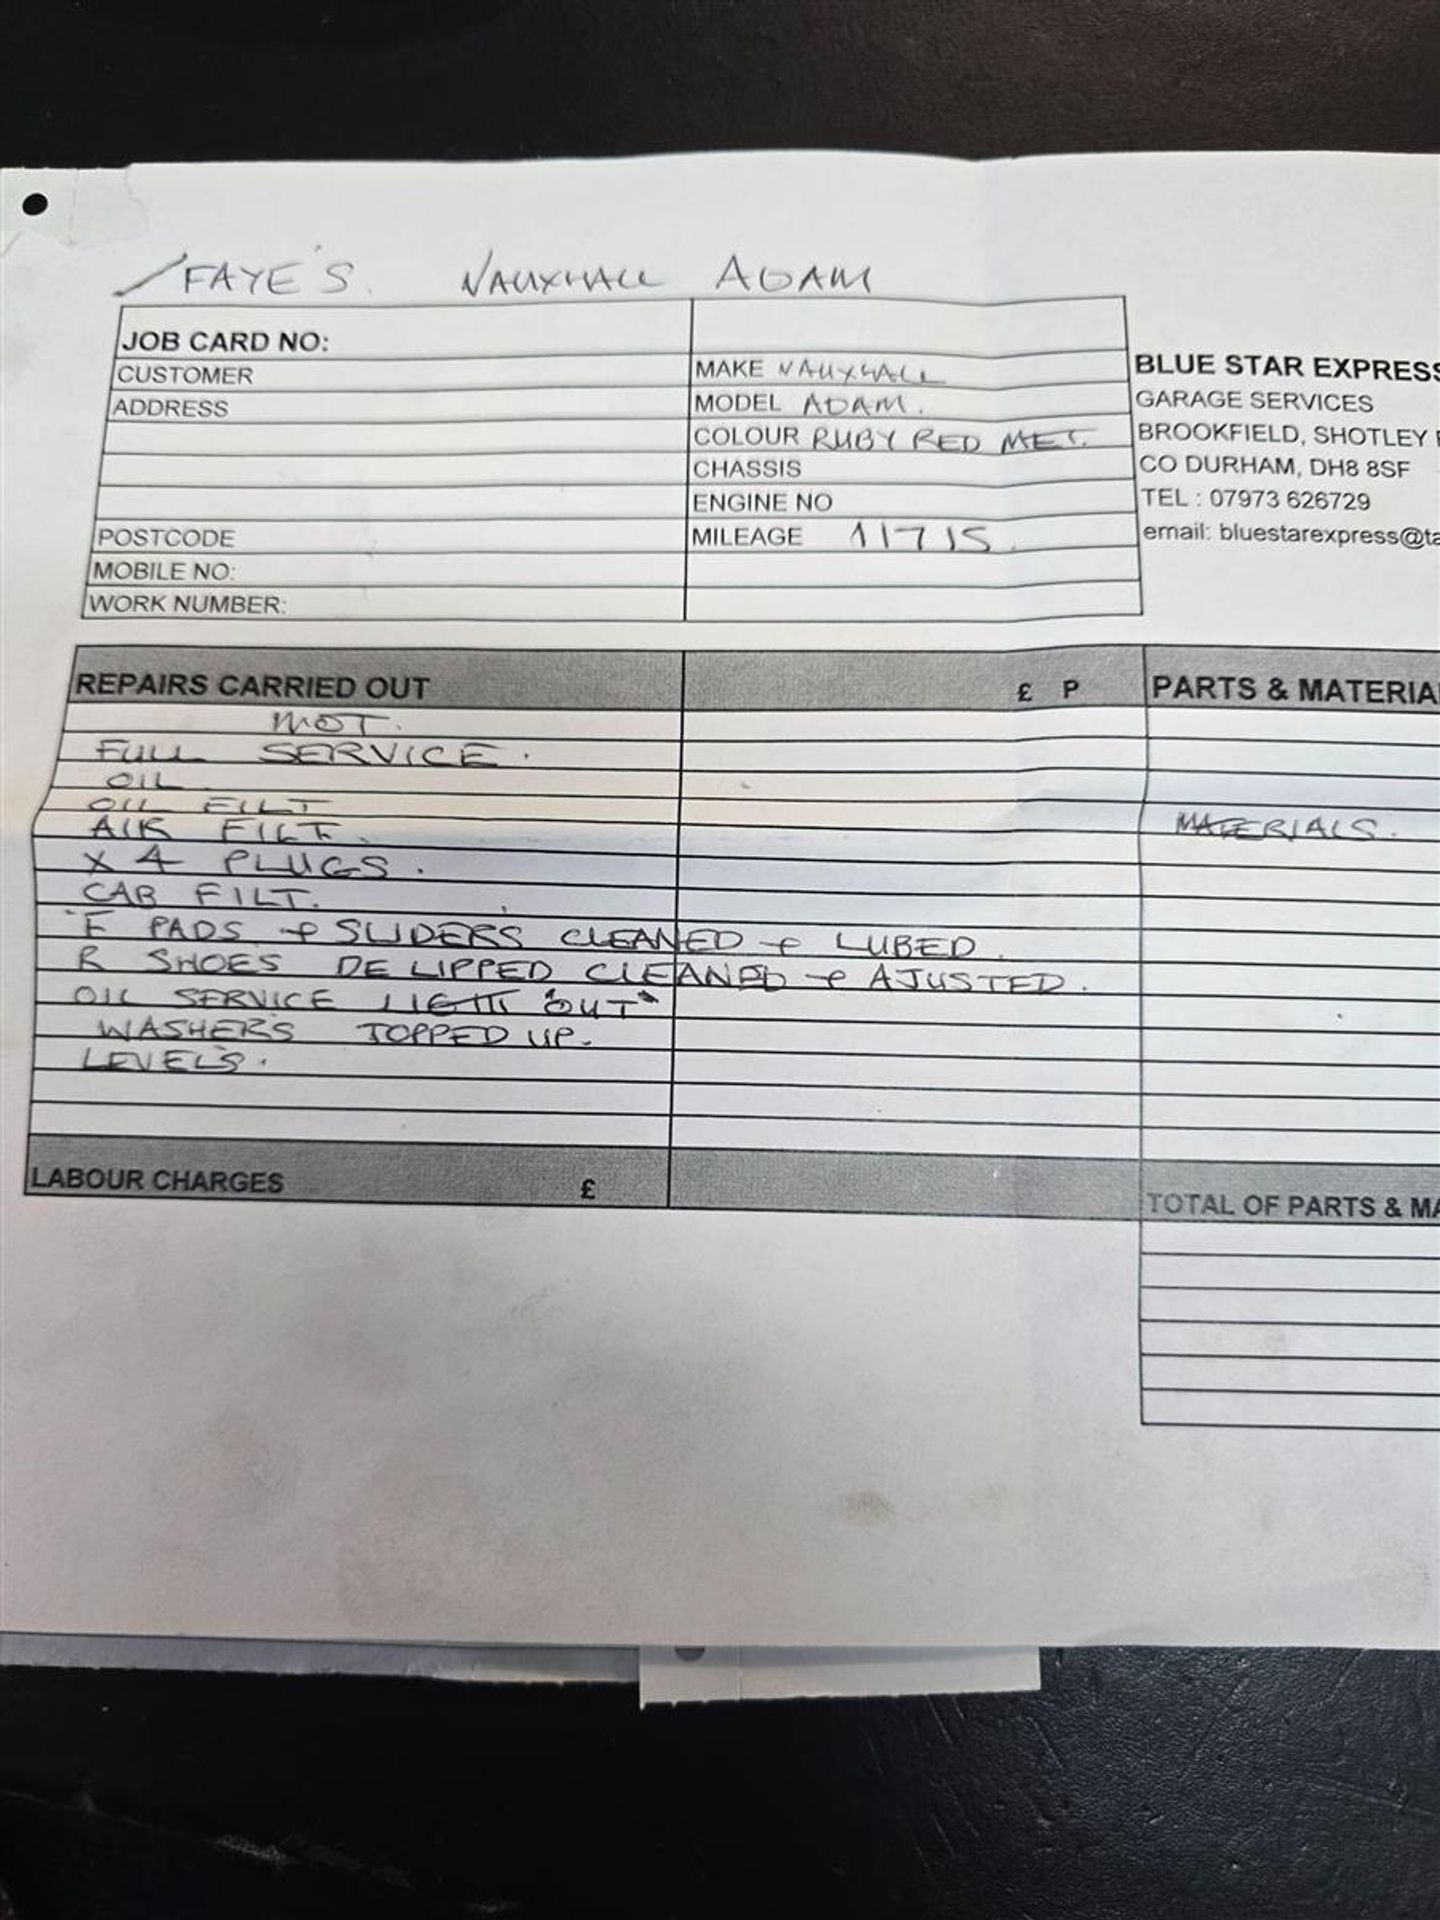 FAYE'S. VAUXHALL ADAM
JOB CARD NO:
CUSTOMER
ADDRESS
POSTCODE
MOBILE NO:
WORK NUMBER:
MAKE VAUXHALL
MODEL ADAM.
COLOUR RUBY RED MET.
CHASSIS
ENGINE NO
MILEAGE 11715
BLUE STAR EXPRESS
GARAGE SERVICES
BROOKFIELD, SHOTLEY
CO DURHAM, DH8 8SF
TEL : 07973 626729
email: bluestarexpress@ta
REPAIRS CARRIED OUT £ P
MOT.
FULL SERVICE.
OIL
OIL FILT
AIR FILT.
X 4 PLUGS.
CAB FILT.
F PADS + SLIDERS CLEANED + LUBED.
R SHOES DELIPPED CLEANED + AJUSTED.
OIL SERVICE LIGHT "OUT"
WASHERS TOPPED UP.
LEVELS.
LABOUR CHARGES £
PARTS & MATERIA
MATERIALS.
TOTAL OF PARTS & MA